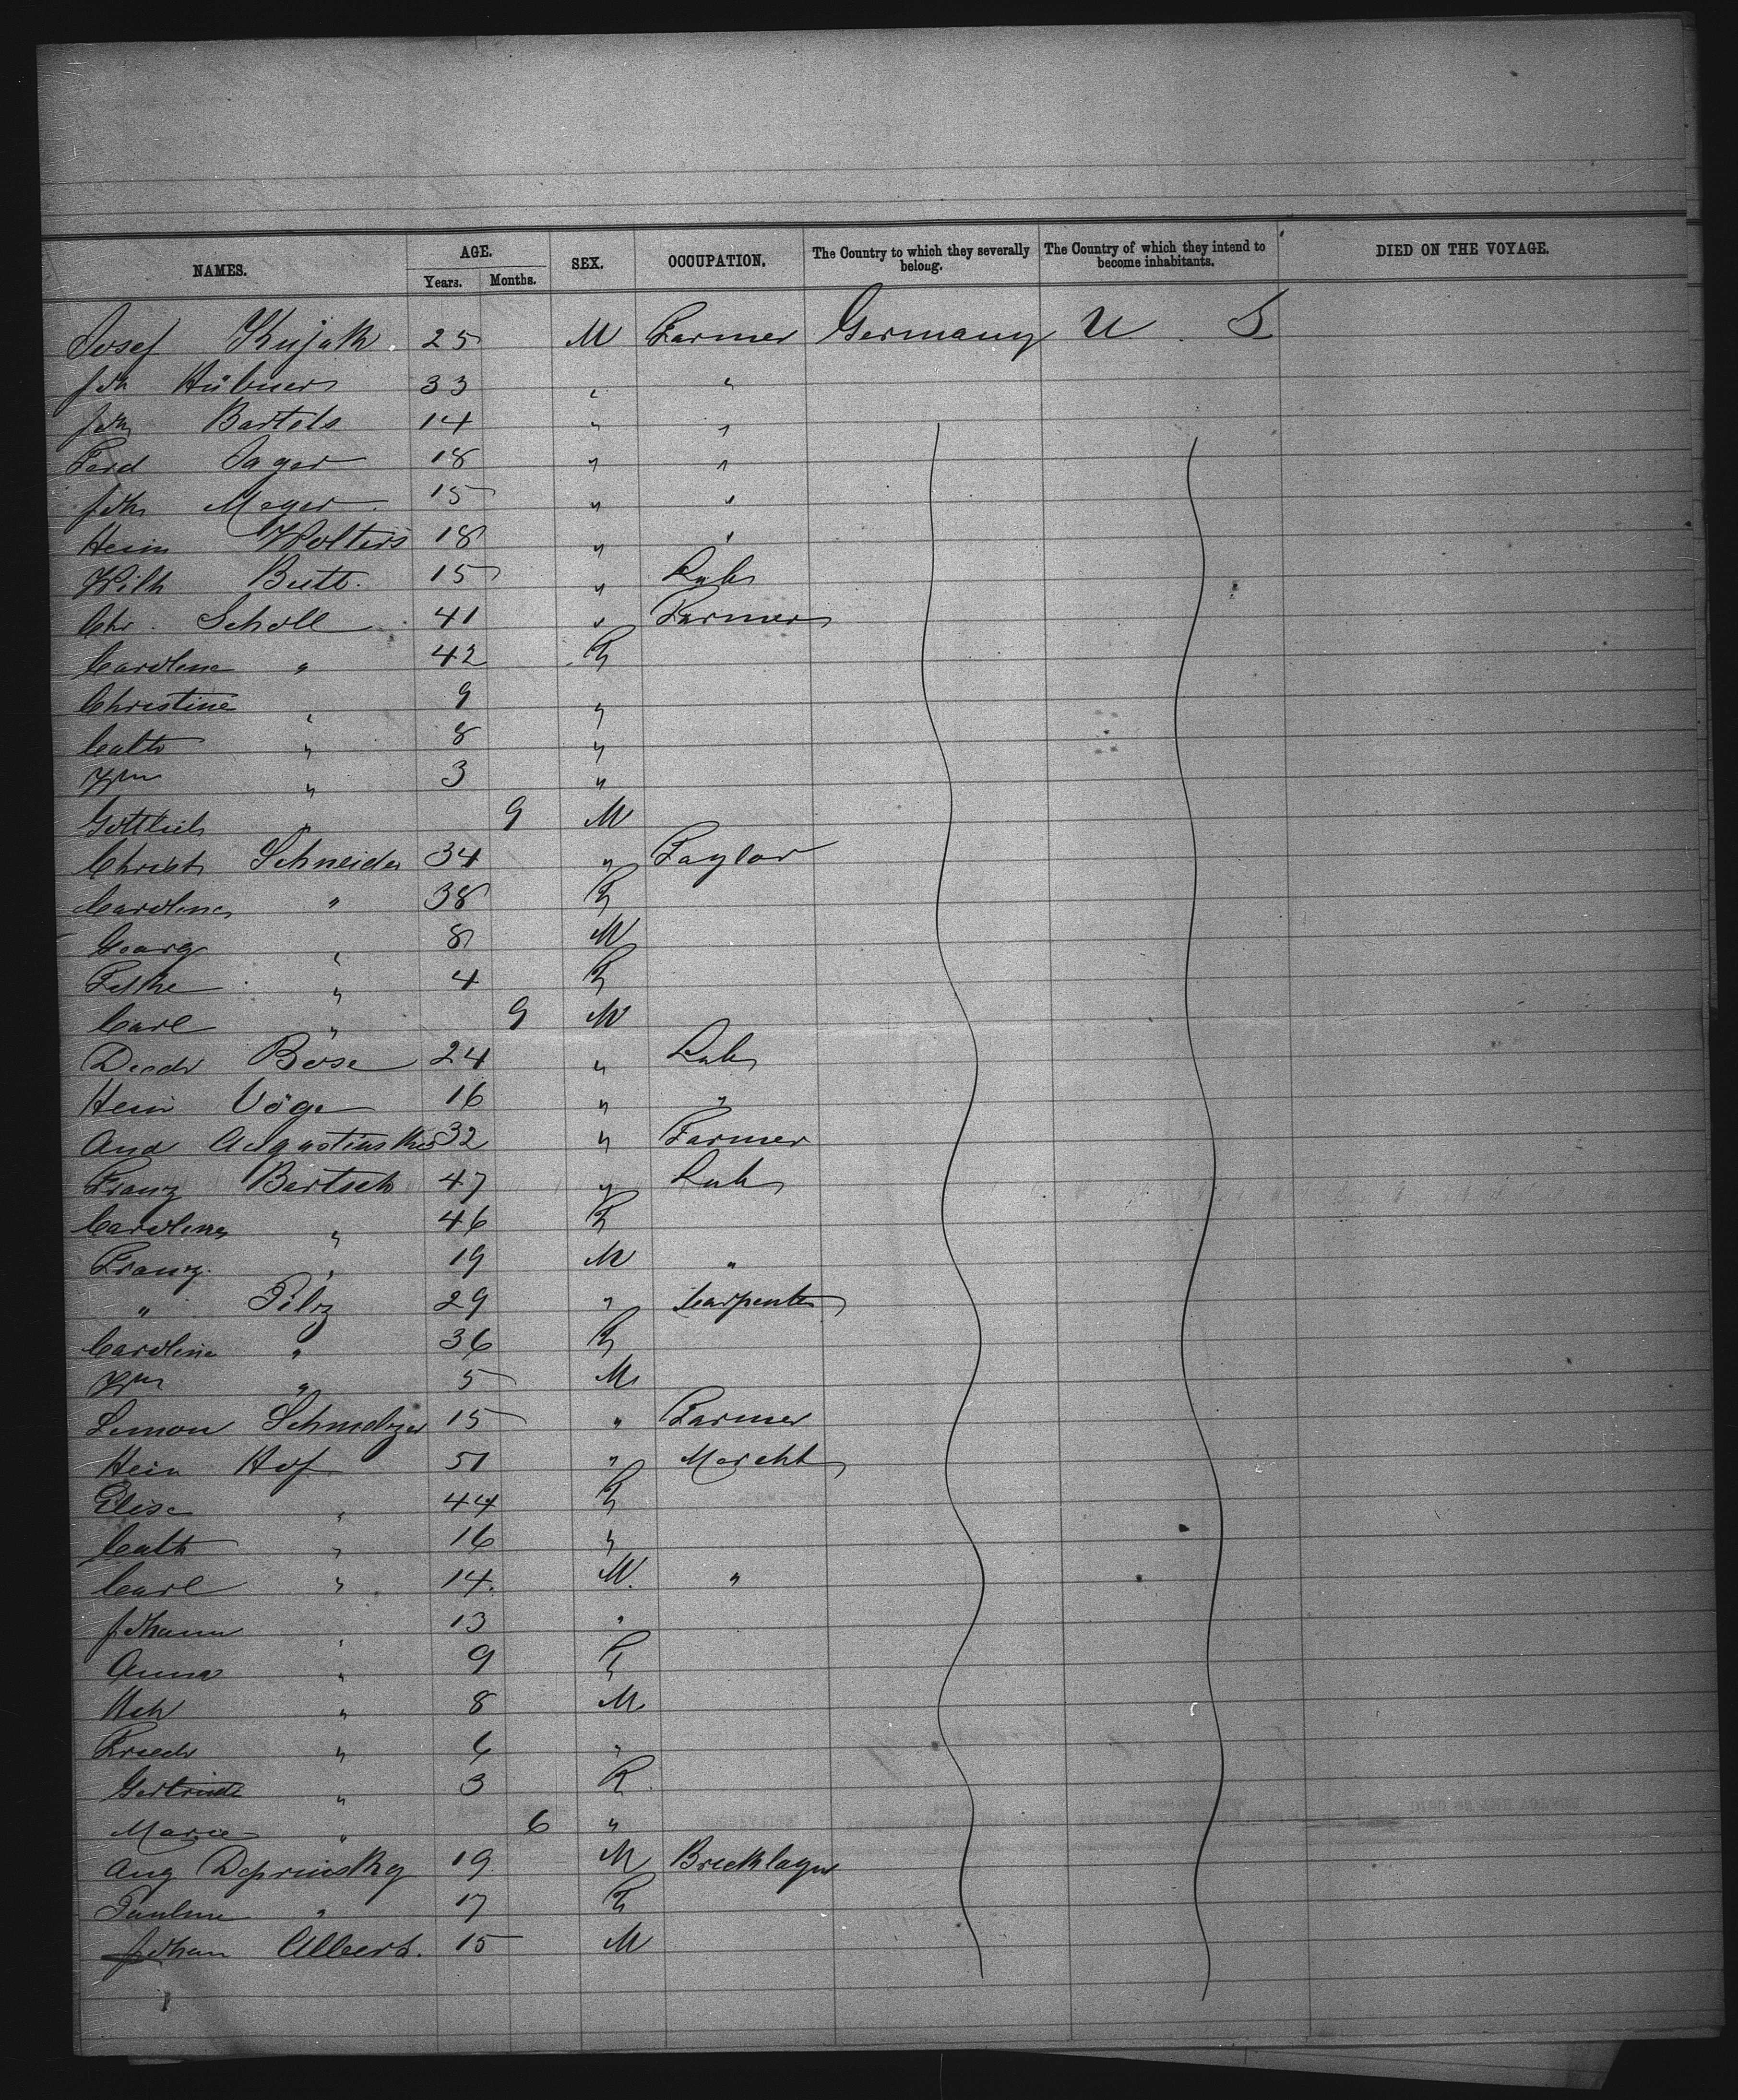 NAMES. AGE. Years. Months. SEX. OCCUPATION. The Country to which they severally belong. The Country of which they intend to become inhabitants. DIED ON THE VOYAGE.
Josef Kujath. 25 M Farmer Germany U. S
Joh Hübner 33 " "
Joh Bartels 14 " "
Ferd Jager 18 " "
Joh Meyer. 15 " "
Hein Wolters 18 " "
Wilh 15 " Lab
Chr. Scholl 41 " Farmer
Caroline " 42 F
Christine " 9 "
Cath " 8 "
Wm " 3 "
Gottlieb " 9 M
Christ Schneider 34 " Taylor
Caroline " 38 F
Georg " 8 M
" 4 F
Carl " 9 M
Diedr Bose 24 " Lab
Hein Vöge 16 " "
And 32 " Farmer
Franz Bartsch 47 " Lab
Caroline " 46 F
Franz. " 19 M "
" Pilz 29 " Carpenter
Caroline " 36 F
Wm " 5 M
Simon Schmelzer 15 " Farmer
Hein Hof 51 " Marcht
Elise " 44 F
Cath " 16 "
Carl " 14. M. "
Johann " 13 "
Anna " 9 F
Hch " 8 M
Friedr " 6 "
Gertrude " 3 F
Marie " 6 "
Aug 19 M Bricklayer
Pauline " 17 F
Johan Albert. 15 M